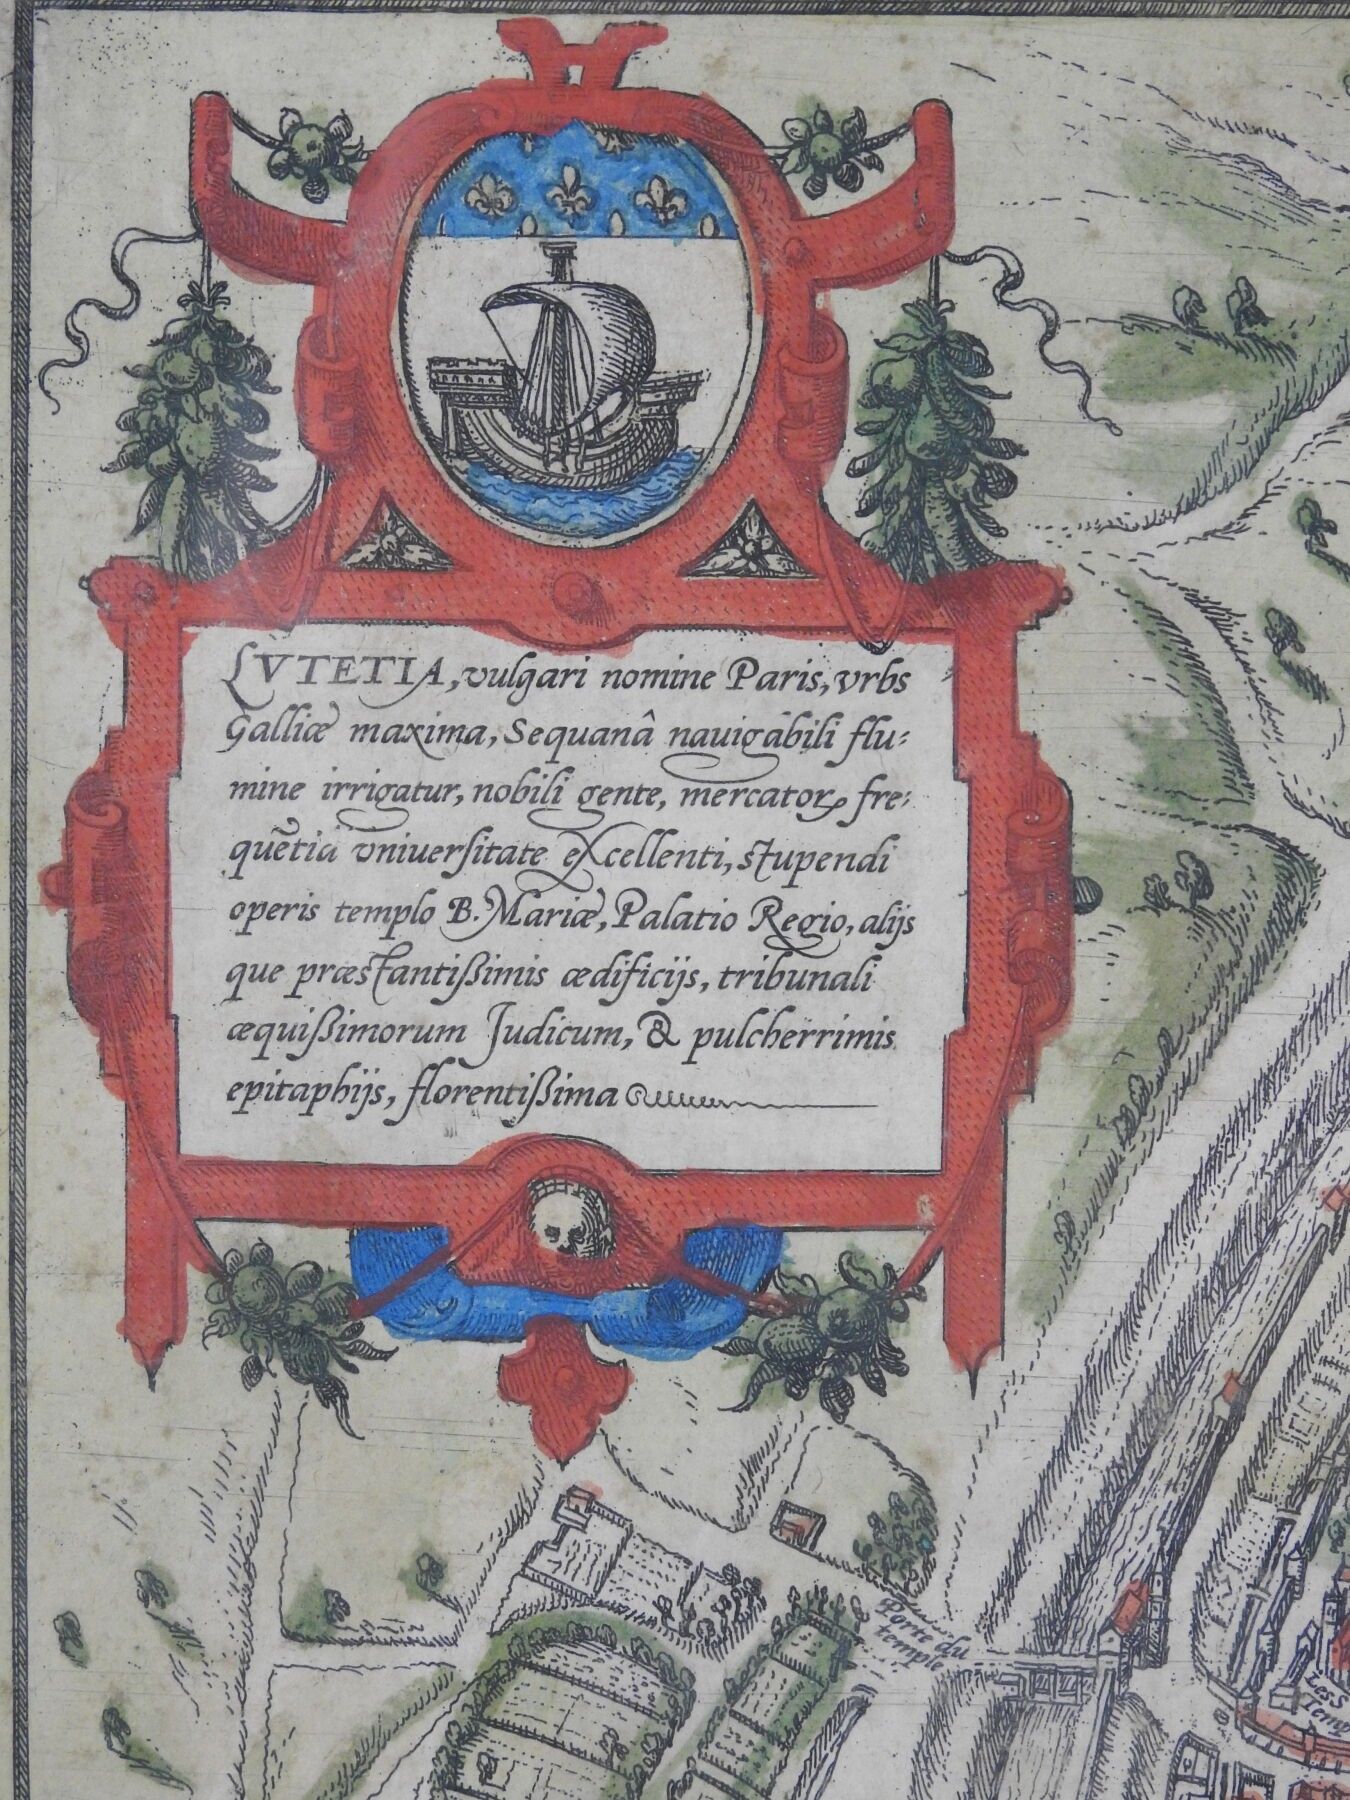 LVTETIA, vulgari nomine Paris, vrbs
Galliæ maxima, Sequanâ nauigabili flu-
mine irrigatur, nobili gente, mercatorꝝ fre-
quẽtia vniuersitate excellenti, stupendi
operis templo B. Mariæ, Palatio Regio, alijs
que præstantißimis ædificijs, tribunali
æquißimorum Judicum, & pulcherrimis
epitaphijs, florentißima
Porte du
temple
Les
Temp